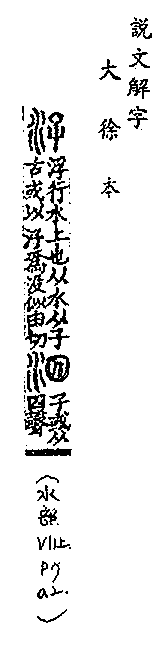 説文解字
大徐本
汓 浮行水上也从水从子
古或以汓爲没似由切
泅 汓或从
囚聲
（水部
VII上
p7
a2.）